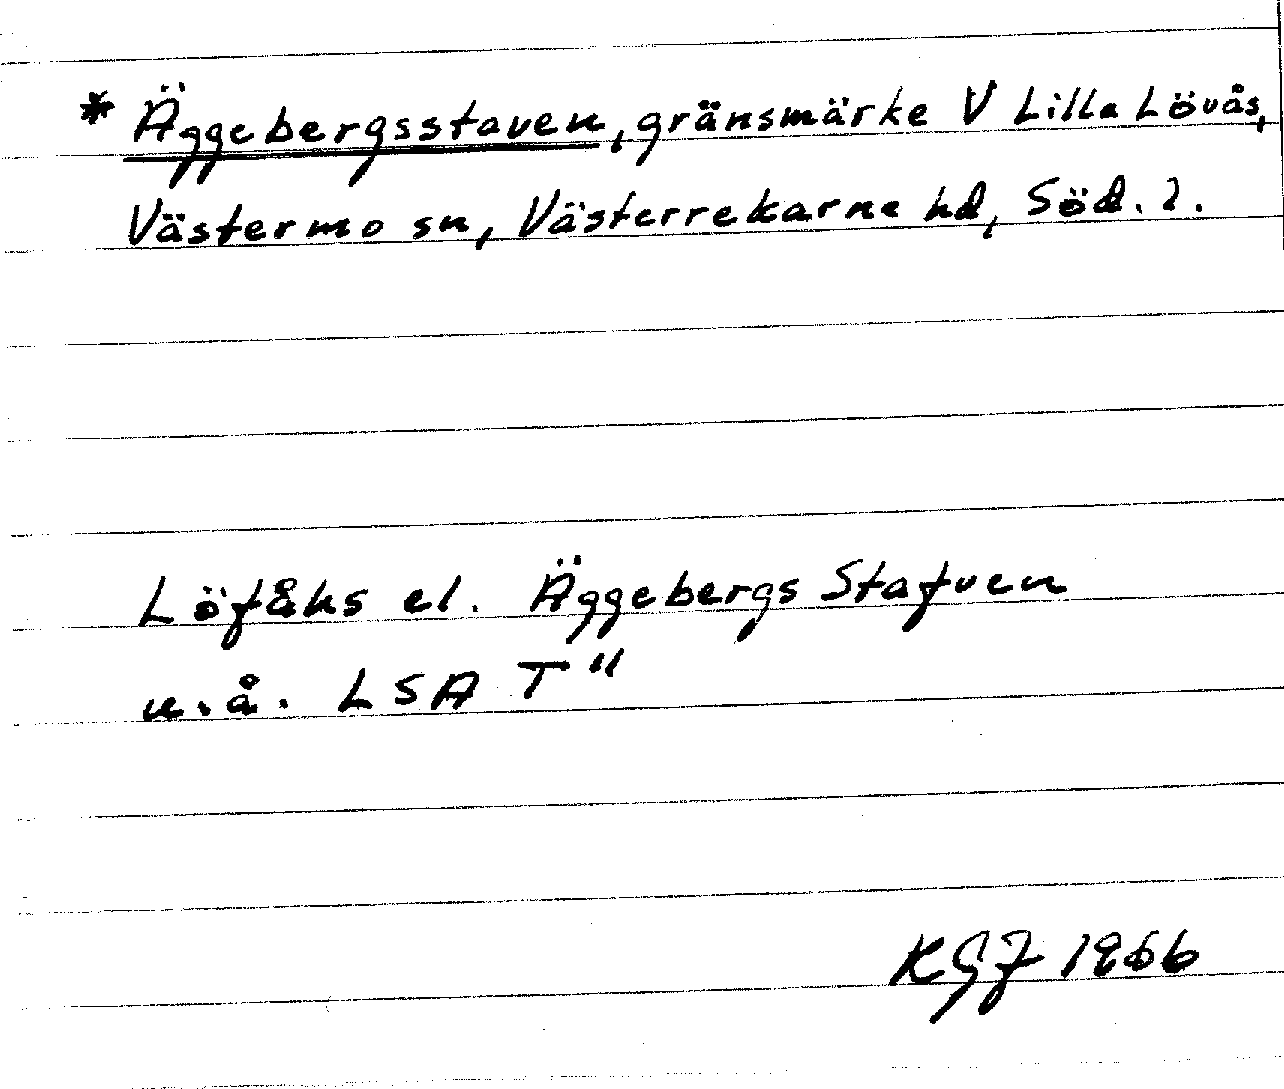 * Äggebergsstaven, gränsmärke V Lilla Lövås,
Västermo sn, Västerrekarne hd, Söd. l.
Löfåhs el. Äggebergs Stafven
u.å. LSA T"
KGJ 1966